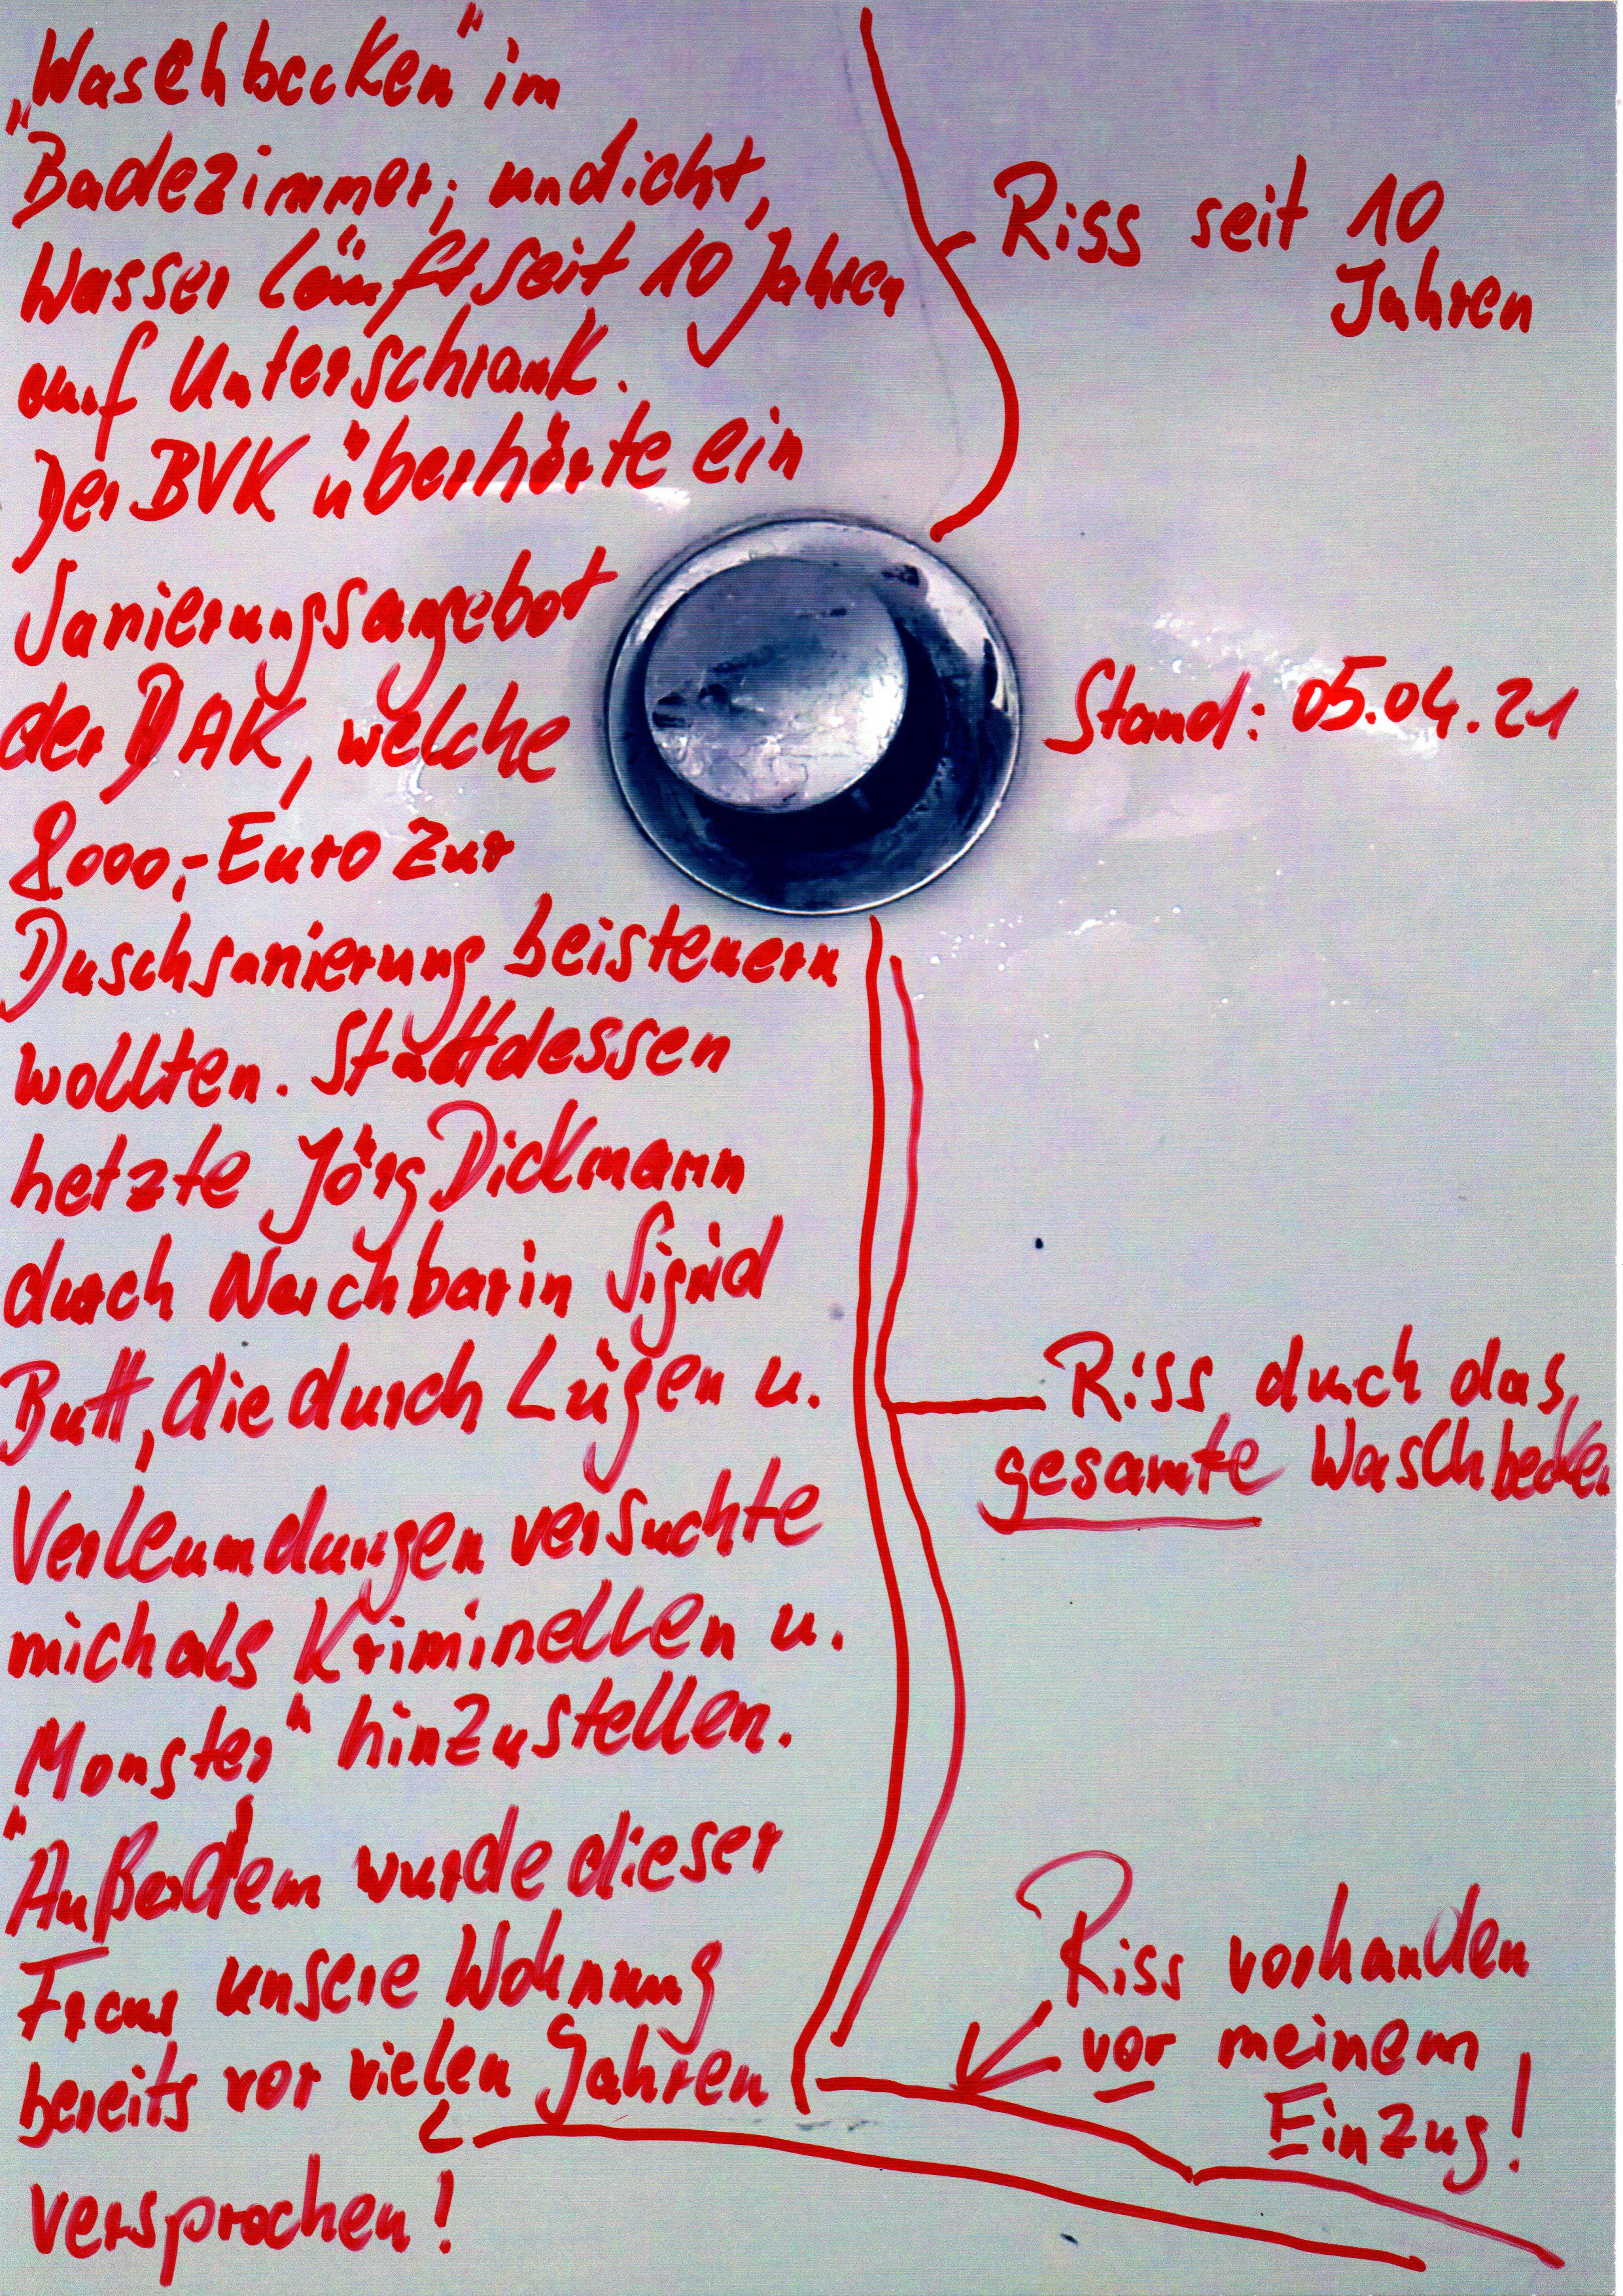 „Waschbecken“ im
Badezimmer; undicht,
Wasser läuft seit 10 Jahren
auf Unterschrank.
Der BVK überhörte ein
Sanierungsangebot
der DAK, welche
8000,- Euro zur
Duschsanierung beisteuern
wollten. Stattdessen
hetzte Jörg Dickmann
durch Nachbarin Sigrid
Butt, die durch Lügen u.
Verleumdungen versuchte
mich als Kriminellen u.
„Monster“ hinzustellen.
Außerdem wurde dieser
Frau unsere Wohnung
bereits vor vielen Jahren
versprochen!
Riss seit 10
Jahren
Stand: 05.04.21
Riss durch das
gesamte Waschbecken
Riss vorhanden
vor meinem
Einzug!